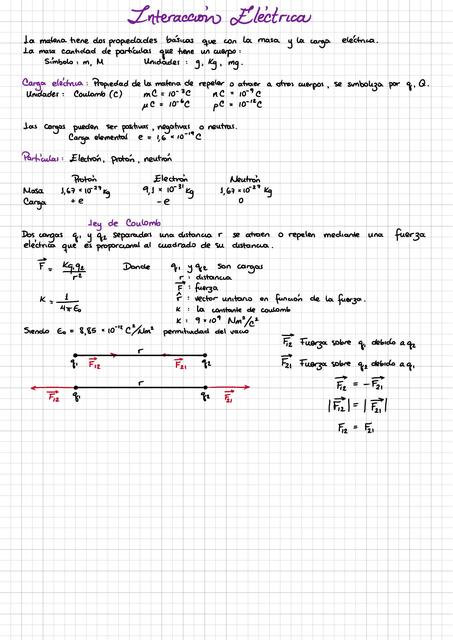 Interacción Eléctrica
La materia tiene dos propiedades básicas que con la masa y la carga eléctrica.
La masa cantidad de partículas que tiene un cuerpo:
Símbolo: m, M Unidades: g, Kg, mg.
Carga eléctrica: Propiedad de la materia de repeler o atraer a otros cuerpos, se simboliza por q, Q.
Unidades: Coulomb (C) mC = 10⁻³C nC = 10⁻⁹C
μC = 10⁻⁶C pC = 10⁻¹²C
Las cargas pueden ser positivas, negativas o neutras.
Carga elemental e = 1,6 × 10⁻¹⁹C
Partículas: Electrón, protón, neutrón
Protón Electrón Neutrón
Masa 1,67 × 10⁻²⁷ Kg 9,1 × 10⁻³¹ Kg 1,67 × 10⁻²⁷ Kg
Carga + e - e 0
Ley de Coulomb
Dos cargas q₁ y q₂ separadas una distancia r se atraen o repelen mediante una fuerza
eléctrica que es proporcional al cuadrado de su distancia.
F⃗ = Kq₁q₂ / r² Donde q₁ y q₂ son cargas
r : distancia
F⃗ : fuerza
r̂ : vector unitario en función de la fuerza.
K = 1 / 4πε₀ K : la constante de coulomb
K : 9 × 10⁹ Nm²/C²
Siendo ε₀ = 8,85 × 10⁻¹² C²/Nm² permitividad del vacío
F₁₂⃗ Fuerza sobre q₁ debido a q₂
r
q₁ F₁₂⃗ F₂₁⃗ q₂
F₂₁⃗ Fuerza sobre q₂ debido a q₁
r
F₁₂⃗ q₁ q₂ F₂₁⃗
F₁₂⃗ = - F₂₁⃗
|F₁₂⃗| = |F₂₁⃗|
F₁₂ = F₂₁